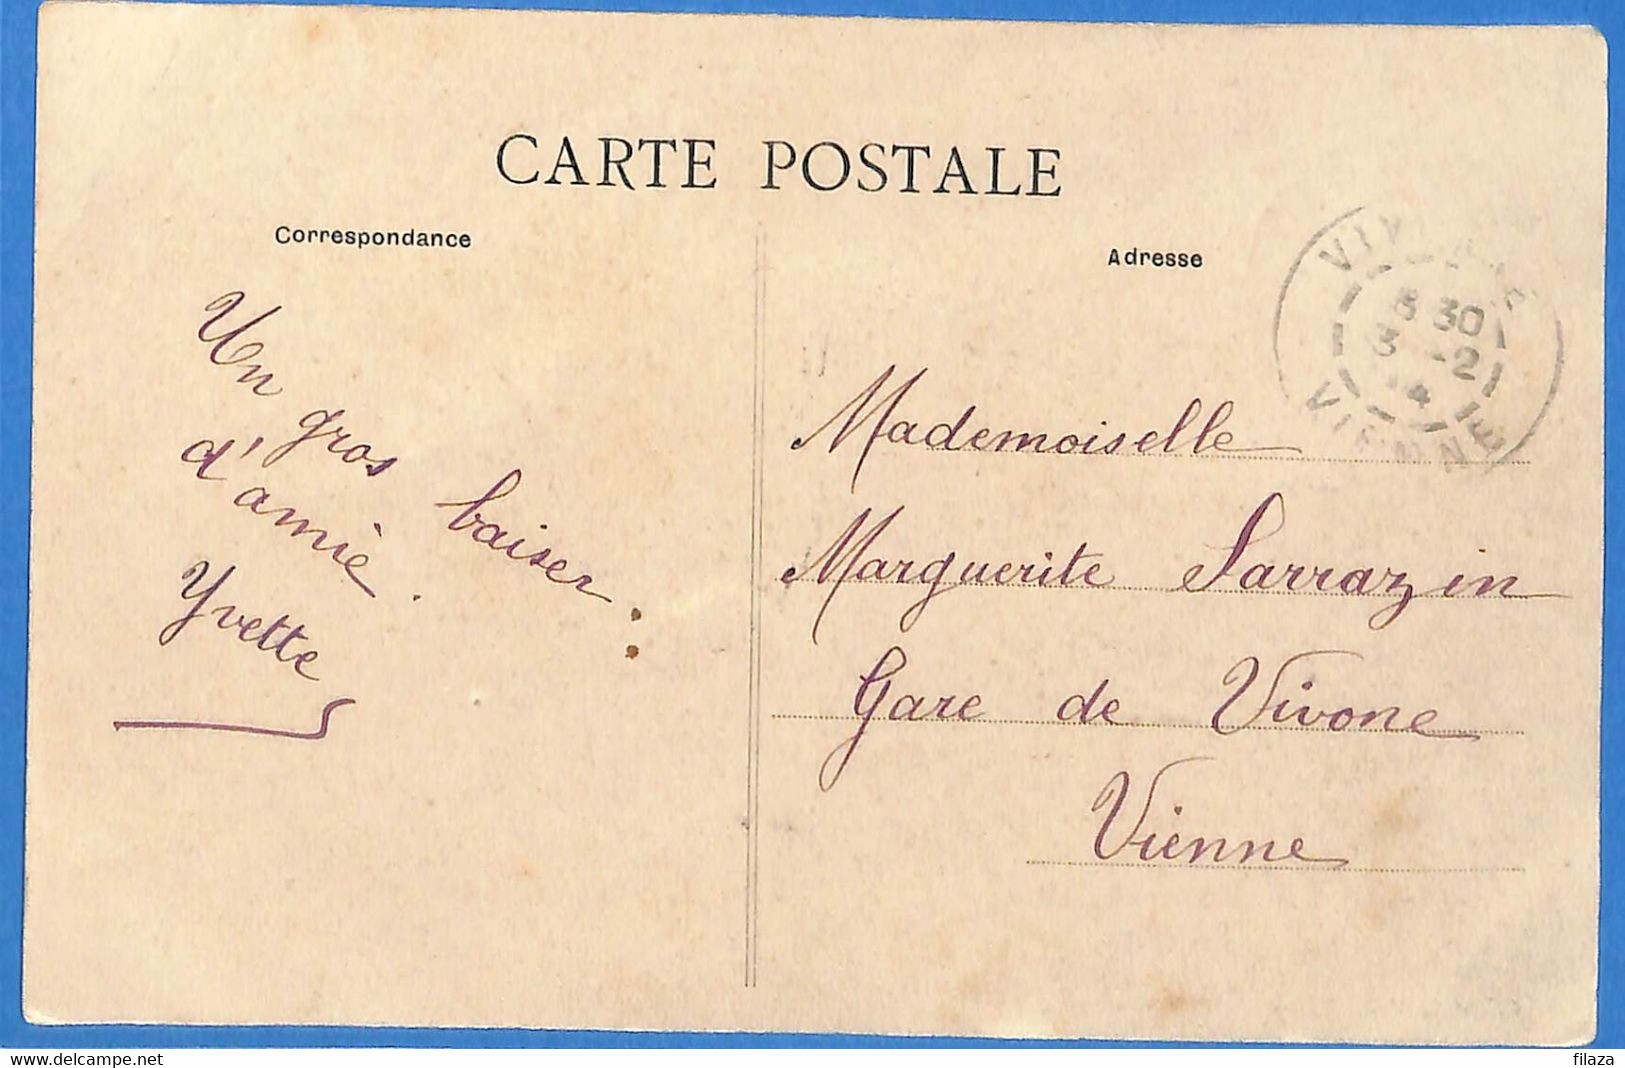 CARTE POSTALE
Correspondance
Adresse
Un gros baiser
d'amie.
Yvette
Mademoiselle
Marguerite Sarrazin
Gare de Vivone
Vienne
30
3 -2
VIENNE
delcampe.net
filaza